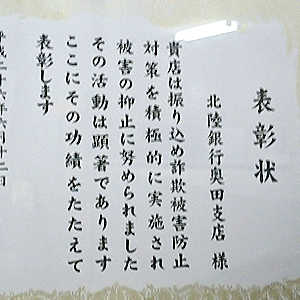 表彰状
北陸銀行奥田支店 様
貴店は振り込め詐欺被害防止
対策を積極的に実施され
被害の抑止に努められました
その活動は顕著であります
ここにその功績をたたえて
表彰します
平成二十六年六月十二日